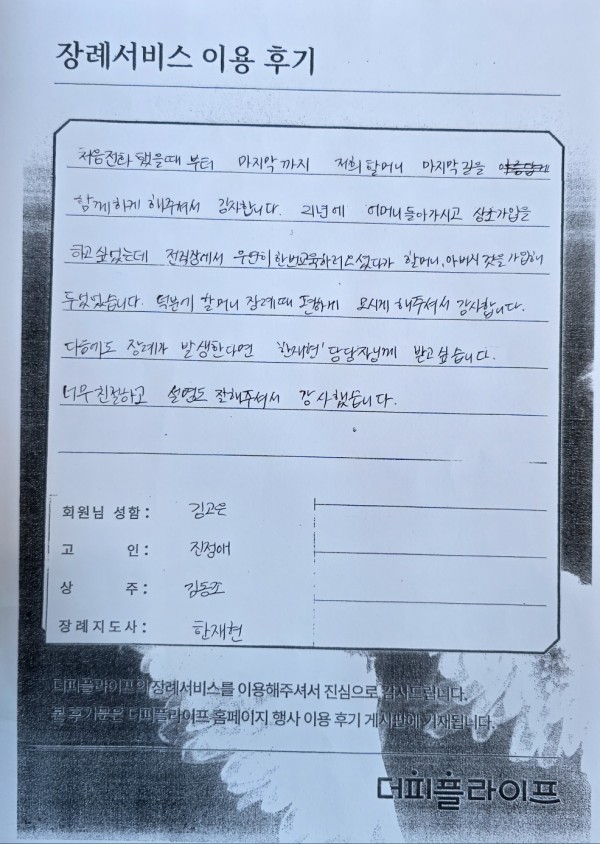 장례서비스 이용 후기
처음전화 했을때 부터 마지막 까지 저희 할머니 마지막 길을
함께하게 해주셔서 감사합니다. 21년에 어머니 돌아가시고 상조가입을
하고 싶었는데 전직장에서 우연히 한번 교육하러 오셨다가 할머니, 아버지 것을 가입해
두었었습니다. 덕분에 할머니 장례때 편하게 모시게 해주셔서 감사합니다.
다음에도 장례가 발생한다면 '한재현' 담당자님께 받고 싶습니다.
너무 친절하고 설명도 잘해주셔서 감사했습니다.
회원님 성함 : 김고은
고 인 : 진정애
상 주 : 김동조
장례지도사 : 한재현
더피플라이프의 장례서비스를 이용해주셔서 진심으로 감사드립니다.
본 후기문은 더피플라이프 홈페이지 행사 이용 후기 게시판에 기재됩니다.
더피플라이프